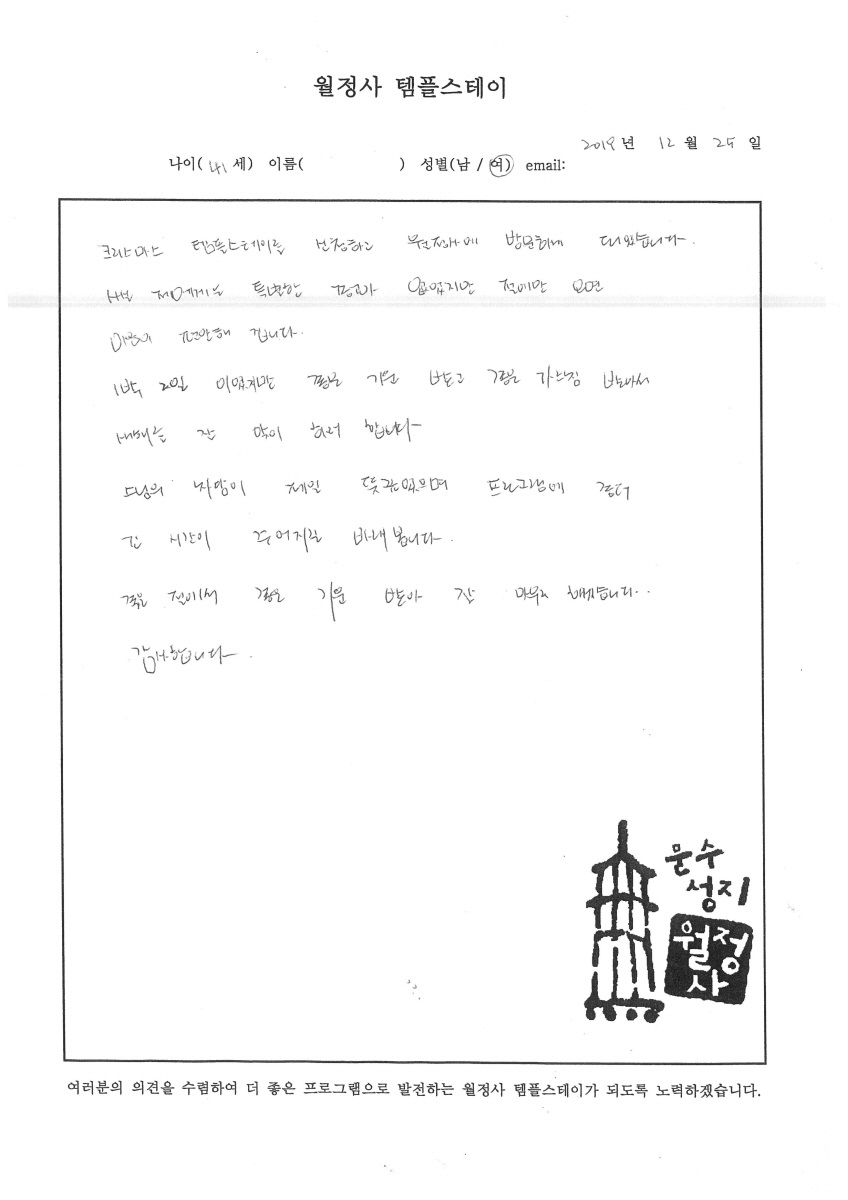 월정사 템플스테이
2019년 12월 25일
나이( 41 세) 이름( ) 성별(남 / 여) email:
크리스마스 템플스테이를 신청하고 월정사에 방문하게 되었습니다.
사실 저에게는 특별한 종교가 없었지만 절에만 오면
마음이 편안해 집니다.
1박 2일 이었지만 좋은 기운 받고 좋은 가르침 받아서
새해를 잘 맞이 하려 합니다
스님의 차담이 제일 뜻깊었으며 프로그램에 좀더
긴 시간이 주어지길 바래 봅니다.
좋은 절에서 좋은 기운 받아 잘 마무리 하겠습니다..
감사합니다.
문수
성지
월정
사
여러분의 의견을 수렴하여 더 좋은 프로그램으로 발전하는 월정사 템플스테이가 되도록 노력하겠습니다.